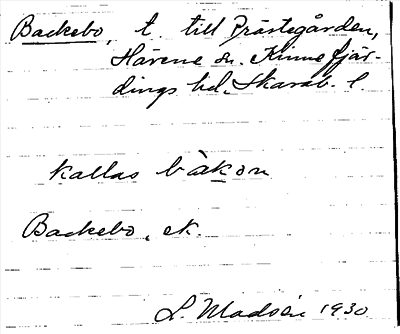 Backebo, t. till Prästegården,
Härene sn. Kinnefjär-
dings hd. Skarab. l
kallas bàkon
Backebo, ek.
L. Madsén 1930